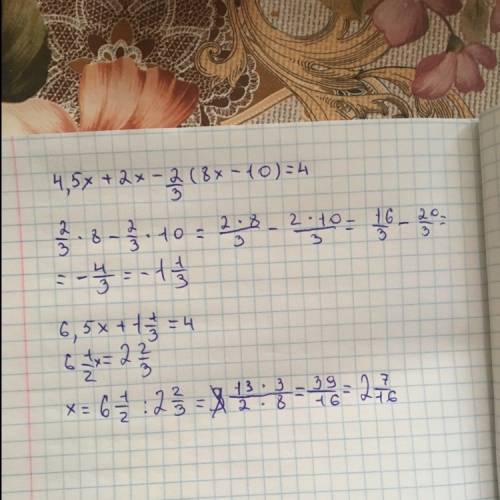 4,5x + 2x - 2/3 (8x - 10) = 4
2/3 · 8 - 2/3 · 10 = (2 · 8)/3 - (2 · 10)/3 = 16/3 - 20/3 =
= - 4/3 = -1 1/3
6,5x + 1 1/3 = 4
6 1/2 x = 2 2/3
x = 6 1/2 : 2 2/3 = (13 · 3)/(2 · 8) = 39/16 = 2 7/16